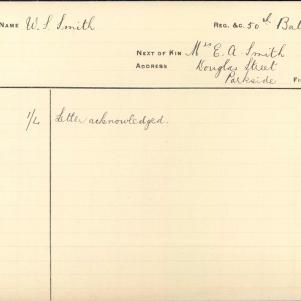 NAME W. S. Smith REG. &C. 50th Bat
NEXT OF KIN Mrs E. A. Smith
ADDRESS Douglas Street
Parkside
1/4 Letter acknowledged.